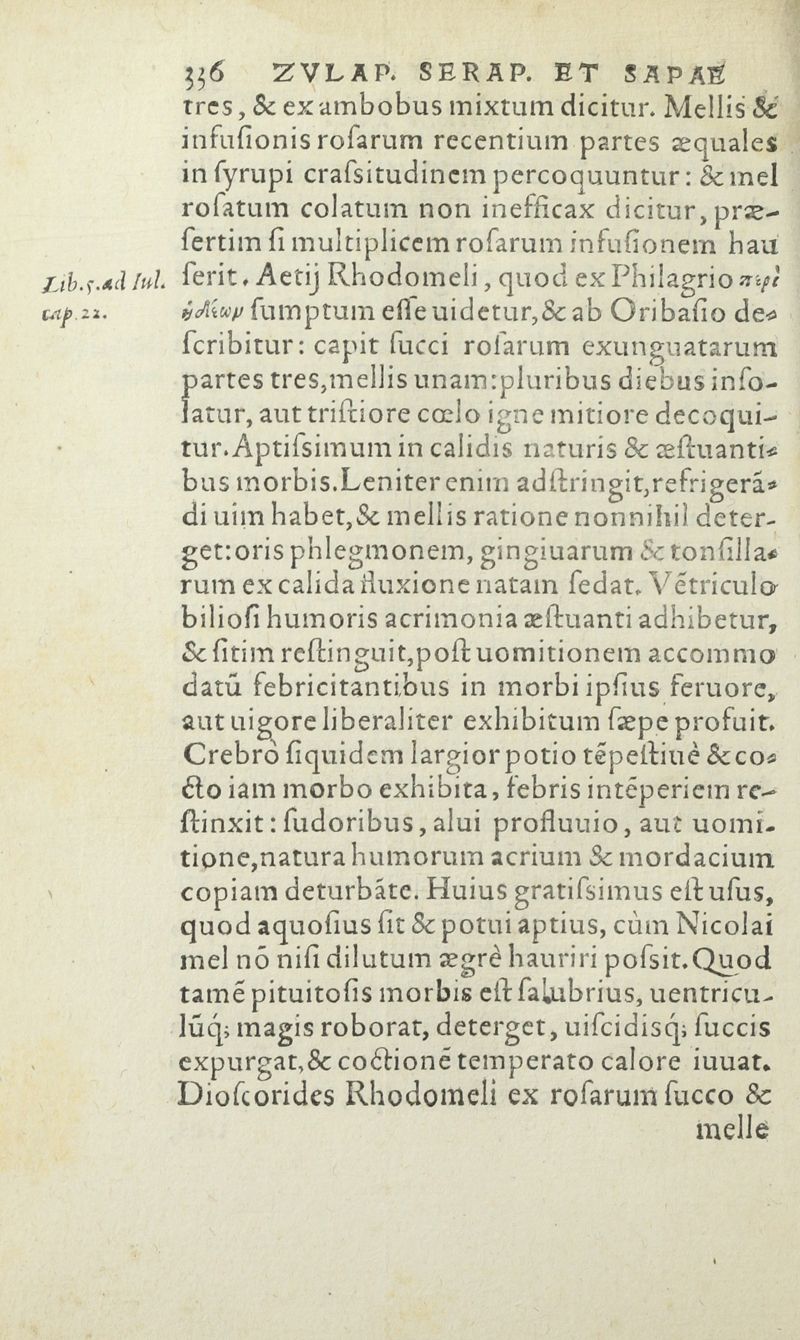 336 ZVLAP. SERAP. ET SAPAE
tres, & ex ambobus mixtum dicitur. Mellis &
infuſionis roſarum recentium partes æquales
in ſyrupi craſsitudinem percoquuntur: & mel
roſatum colatum non inefficax dicitur, præ-
ſertim ſi multiplicem roſarum infuſionem hau
Lib.5.ad Iul. ſerit. Aetij Rhodomeli, quod ex Philagrio περὶ
cap.22. ἡδέων ſumptum eſſe uidetur,& ab Oribaſio de-
ſcribitur: capit ſucci roſarum exunguatarum
partes tres,mellis unam:pluribus diebus inſo-
latur, aut triſtiore cœlo igne mitiore decoqui-
tur.Aptiſsimum in calidis naturis & æſtuanti-
bus morbis.Leniter enim adſtringit,refrigerã-
di uim habet,& mellis ratione nonnihil deter-
get:oris phlegmonem, gingiuarum & tonſilla-
rum ex calida fluxione natam ſedat. Vẽtriculo
bilioſi humoris acrimonia æſtuanti adhibetur,
& ſitim reſtinguit,poſt uomitionem accommo
datũ febricitantibus in morbi ipſius feruore,
aut uigore liberaliter exhibitum ſæpe profuit.
Crebrò ſiquidem largior potio tẽpeſtiuè & co-
cto iam morbo exhibita, febris intẽperiem re-
ſtinxit: ſudoribus, alui profluuio, aut uomi-
tione,natura humorum acrium & mordacium
copiam deturbãte. Huius gratiſsimus eſt uſus,
quod aquoſius ſit & potui aptius, cùm Nicolai
mel nõ niſi dilutum ægrè hauriri poſsit.Quod
tamẽ pituitoſis morbis eſt ſalubrius, uentricu-
lũq; magis roborat, deterget, uiſcidisq; ſuccis
expurgat,& coctionẽ temperato calore iuuat.
Dioſcorides Rhodomeli ex roſarum ſucco &
melle